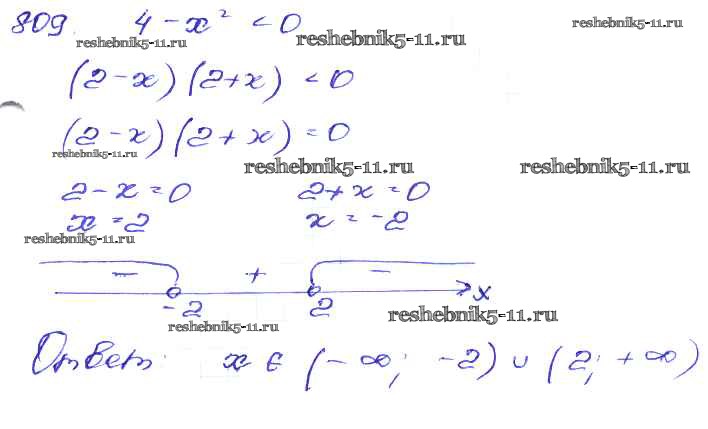 809. 4 - x² < 0
reshebnik5-11.ru reshebnik5-11.ru reshebnik5-11.ru
(2-x)(2+x) < 0
(2-x)(2+x) = 0
reshebnik5-11.ru reshebnik5-11.ru reshebnik5-11.ru
2-x=0 2+x=0
x=2 x=-2
reshebnik5-11.ru
- + -
-2 2 x
reshebnik5-11.ru reshebnik5-11.ru
Ответ: x ∈ (-∞; -2) ∪ (2; +∞)